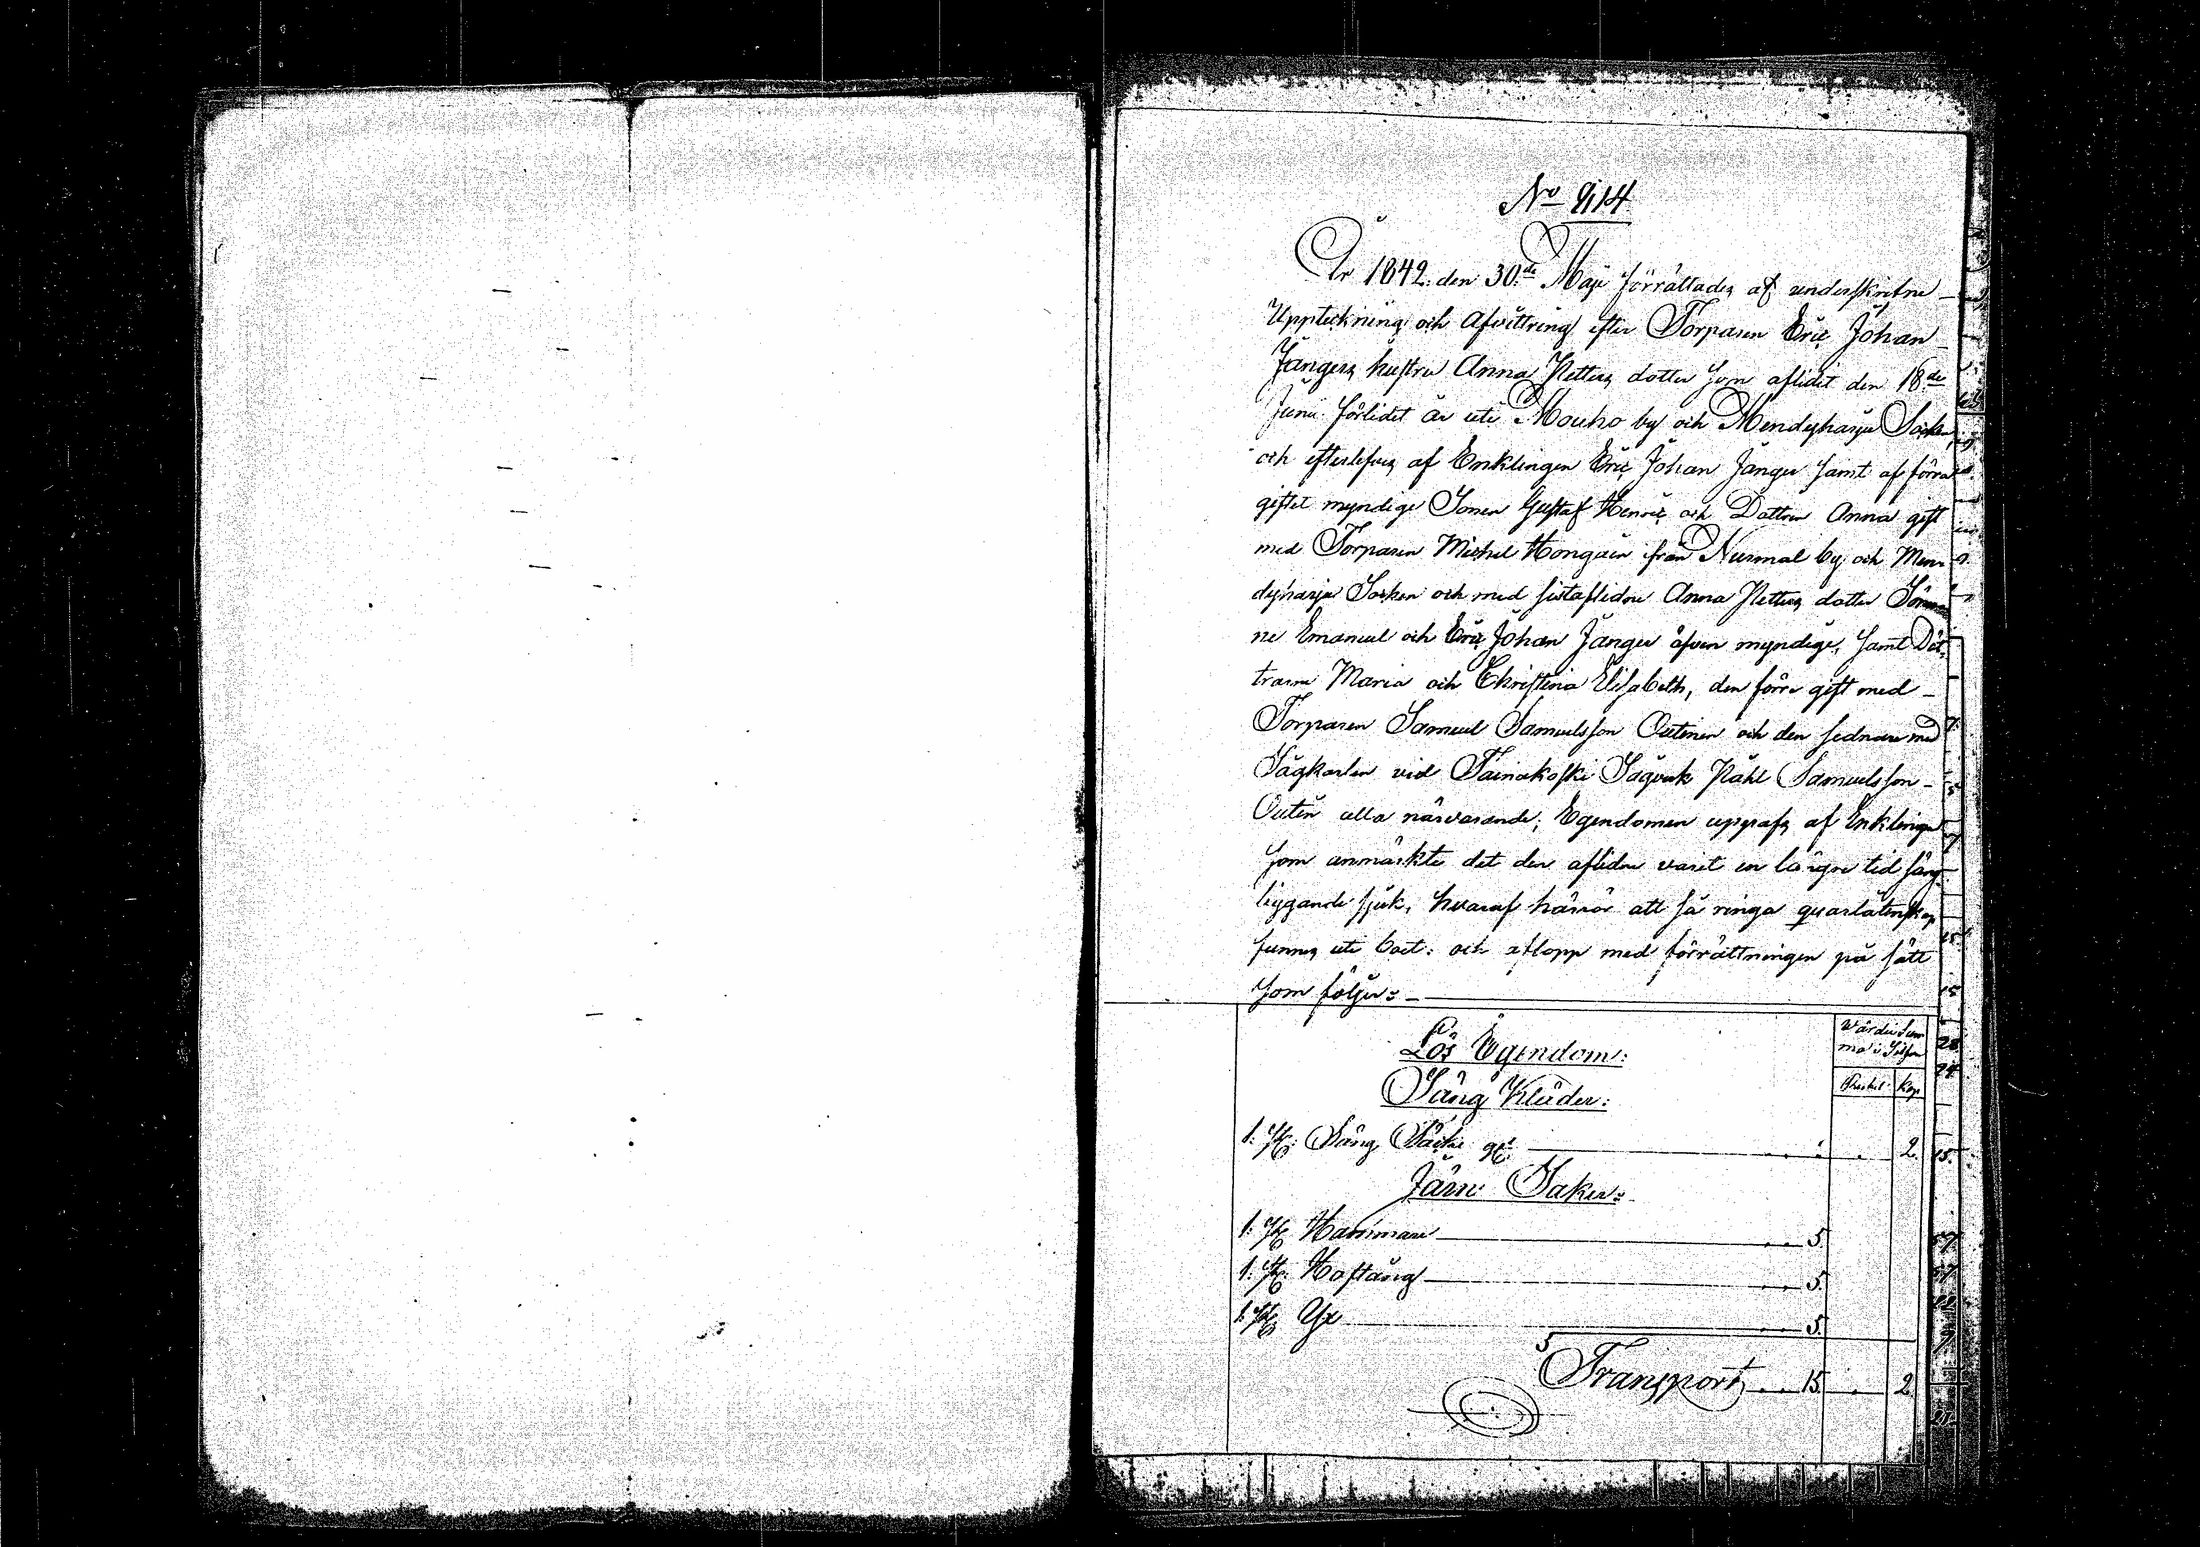 No 414
År 1842. den 30de Maji förrättades af underskrifne
Uppteckning och Afvittring efter Torparen Eric Johan
Jangers hustru Anna Petters dotter som aflidit den 18de
Junii förlidet år uti Mouho by och Mendyharju Socken
och efterlefves af Enklingen Eric Johan Janger samt af förra
giftet myndige Sonen Gustaf Henric och Dottren Anna gift
med Torparen Michel Hongain från Nurmal by och Men-
dyharju Socken och med sistaflidne Anna Petters dotter Söner-
ne Emanuel och Eric Johan Janger äfven myndige, samt Döt-
trarne Maria och Christina Elisabeth, den förre gift med
Torparen Samuel Samuelsson Outinen och den sednare med
Sågkarlen vid Tainakoski Sågverk Påhl Samuelsson
Outin alla närvarande; Egendomen uppgafs af Enklingen
som anmärkte det den aflidne varit en längre tid säng-
liggande sjuk, hvaraf härrör att så ringa qvarlåtenskap
funnes uti boet: och aflopp med förrättningen på sätt
som följer:
Lös Egendom:
Wärdes Sum
ma i Silfver
Rubel Kop.
Säng Kläder:
1. St. Säng Täcke 2.
Järn Saker:
1. St. Hammare 5.
1. St. Hoftång 5.
1. St. Yx 5.
Transport 15. 2